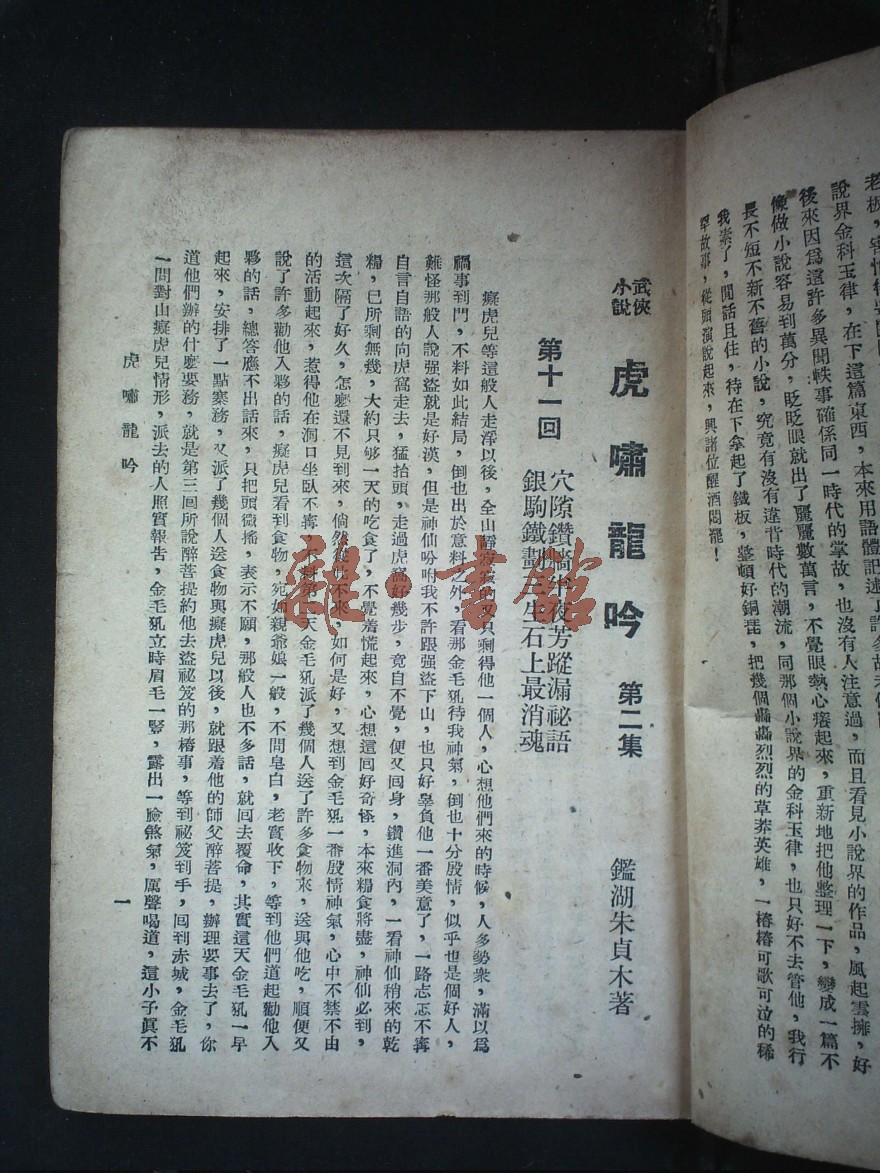 老板，
說界金科玉律，在下這篇東西，本來用語體記述了許多故
後來因爲這許多異聞軼事確係同一時代的掌故，也沒有人注意過，而且看見小說界的作品，風起雲擁，好
像做小說容易到萬分，眨眨眼就出了麗麗數萬言，不覺眼熱心癢起來，重新地把他整理一下，變成一篇不
長不短不新不舊的小說，究竟有沒有違背時代的潮流，同那個小說界的金科玉律，也只好不去管他，我行
我素了，閒話且住，待在下拿起了鐵板，整頓好銅琶，把幾個轟轟烈烈的草莽英雄，一樁樁可歌可泣的稀
罕故事，從頭演說起來，與諸位醒酒悶罷！
武俠小說 虎嘯龍吟 第二集 鑑湖朱貞木著
第十一回
穴隙鑽牆半夜芳蹤漏祕語
銀駒鐵劃三生石上最消魂
癡虎兒等這般人走淨以後，全山靜寂寂的又只剩得他一個人，心想他們來的時候，人多勢衆，滿以爲
禍事到門，不料如此結局，倒也出於意料之外，看那金毛犼待我神氣，倒也十分殷情，似乎也是個好人，
難怪那般人說强盜就是好漢，但是神仙吩咐我不許跟强盜下山，也只好辜負他一番美意了，一路忐忑不寗
自言自語的向虎窩走去，猛抬頭，走過虎窩好幾步，竟自不覺，便又回身，鑽進洞內，一看神仙稍來的乾
糧，已所剩無幾，大約只够一天的吃食了，不覺着慌起來，心想這回好奇怪，本來糧食將盡，神仙必到，
這次隔了好久，怎麼還不見到來，倘然從此不來，如何是好，又想到金毛犼一番殷情神氣，心中不禁不由
的活動起來，惹得他在洞口坐臥不寗，不料第二天金毛犼派了幾個人送了許多食物來，送與他吃，順便又
說了許多勸他入夥的話，癡虎兒看到食物，宛如親爺娘一般，不問皂白，老實收下，等到他們道起勸他入
夥的話，總答應不出話來，只把頭微搖，表示不願，那般人也不多話，就回去覆命，其實這天金毛犼一早
起來，安排了一點寨務，又派了幾個人送食物與癡虎兒以後，就跟着他的師父醉菩提，辦理要事去了，你
道他們辦的什麼要務，就是第三回所說醉菩提約他去盜祕笈的那樁事，等到祕笈到手，回到赤城，金毛犼
一問對山癡虎兒情形，派去的人照實報告，金毛犼立時眉毛一豎，露出一臉煞氣，厲聲喝道，這小子眞不
虎嘯龍吟
一
雜·書館